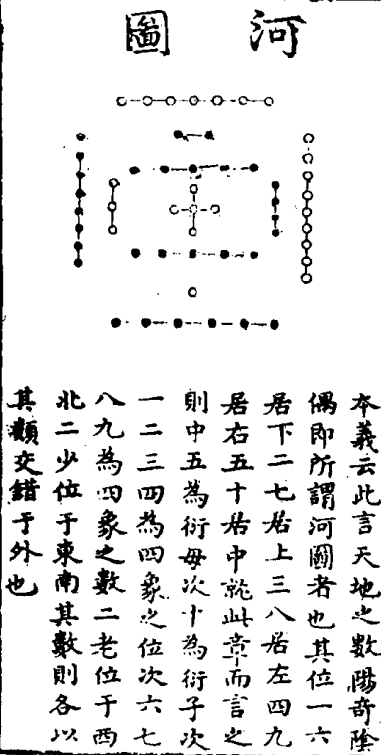 河圖
本義云此言天地之數陽奇陰
偶即所謂河圖者也其位一六
居下二七居上三八居左四九
居右五十居中就此章而言之
則中五為衍母次十為衍子次
一二三四為四象之位次六七
八九為四象之數二老位于西
北二少位于東南其數則各以
其類交錯于外也